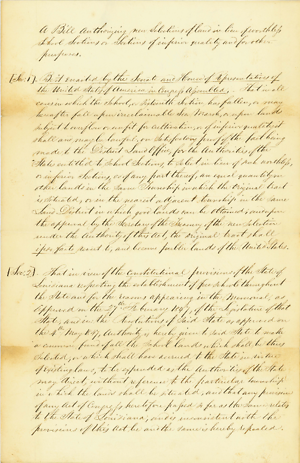 A Bill Authorizing new Selections of land in lieu of
School Sections or Sections of inferior quality and for other
purposes.
(Sec. 1) Be it enacted by the Senate and House of Representatives of
the United States of America in Congress Assembled. That in all
cases in which the School, or Sixteenth Section has fallen, or may
hereafter fall upon irreclaimable Sea Marsh, or upon land
subject to overflow or unfit for cultivation, or of inferior quality it
shall and may be lawful, on Satisfactory proof of the fact being
made at the District Land Office, for the Authorities of the
State entitled to School Sections, to select in lieu of such
or inferior Sections, or of any part thereof, an equal quantity in
other lands in the Same Township in which the Original tract
is situated, or in the nearest adjacent township in the Same
Land District in which good lands can be obtained; and upon
the approval by the Secretary of the Treasury of the new Selection
under the Authority of this Act, the original tract shall
ipso facto revert to, and become public lands of the United States.
(Sec. 2) That in view of the Constitutional provisions of the State of
Louisiana respecting the establishment of free Schools throughout
the State and for the reasons appearing in the Memorial, as
approved on the 27th February 184 , of the Legislature of that
State, and in the of said State as approved on
the 4 May 1847, Authority is hereby given to said State to make
a common fund of all the School lands which shall be thus
Selected, or which shall have accrued to the State in virtue
of existing laws, to be expended as the Authorities of the State
may direct without reference to the particular township
in which the lands shall be situated, and that any provisions
of any Act of Congress heretofore passed so far as the same relates
to the State of Louisiana, and is inconsistent with the
provisions of this Act be and the same is hereby repealed.